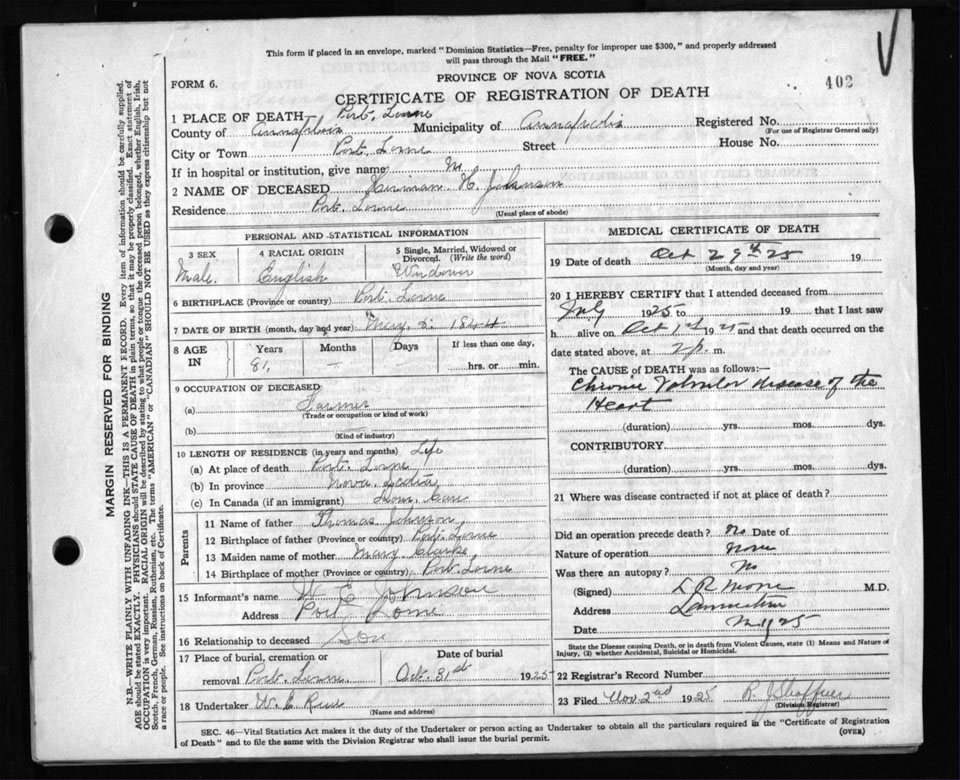 This form if placed in an envelope, marked "Dominion Statistics—Free, penalty for improper use $300," and properly addressed
will pass through the Mail "FREE."
PROVINCE OF NOVA SCOTIA
FORM 6.
402
CERTIFICATE OF REGISTRATION OF DEATH
1 PLACE OF DEATH Port Lorne
County of Annapolis Municipality of Annapolis Registered No.
(For use of Registrar General only)
City or Town Port Lorne Street House No.
If in hospital or institution, give name
2 NAME OF DECEASED Herman H. Johnson
Residence Port Lorne
(Usual place of abode)
PERSONAL AND STATISTICAL INFORMATION
3 SEX 4 RACIAL ORIGIN 5 Single, Married, Widowed or
Divorced. (Write the word)
Male. English
6 BIRTHPLACE (Province or country) Port Lorne
7 DATE OF BIRTH (month, day and year) 1844
8 AGE IN Years Months Days If less than one day,
81, — hrs. or min.
9 OCCUPATION OF DECEASED
(a) Farmer
(Trade or occupation or kind of work)
(b)
(Kind of industry)
10 LENGTH OF RESIDENCE (in years and months) Life
(a) At place of death Port Lorne
(b) In province Nova Scotia
(c) In Canada (if an immigrant)
Parents
11 Name of father Thomas Johnson
12 Birthplace of father (Province or country) Port Lorne
13 Maiden name of mother Mary Clarke
14 Birthplace of mother (Province or country) Port Lorne
15 Informant's name W E Johnson
Address Port Lorne
16 Relationship to deceased Son
17 Place of burial, cremation or Date of burial
removal Port Lorne Oct. 31st 1925
18 Undertaker W. E.
(Name and address)
MEDICAL CERTIFICATE OF DEATH
19 Date of death Oct 29th 25 19
(Month, day and year)
20 I HEREBY CERTIFY that I attended deceased from
July 1925 to 19 that I last saw
h alive on Oct 1st 1925 and that death occurred on the
date stated above, at 2 p. m.
The CAUSE of DEATH was as follows:—
Chronic Valvular disease of the
Heart
(duration) yrs. mos. dys.
CONTRIBUTORY
(duration) yrs. mos. dys.
21 Where was disease contracted if not at place of death?
Did an operation precede death? No Date of
Nature of operation None
Was there an autopsy? No
(Signed) L R Morse M.D.
Address Lawrencetown
Date
State the Disease causing Death, or in death from Violent Causes, state (1) Means and Nature of
Injury, (2) whether Accidental, Suicidal or Homicidal.
22 Registrar's Record Number
23 Filed Nov. 2nd 1925 R. J. Shaffner
(Division Registrar)
SEC. 46—Vital Statistics Act makes it the duty of the Undertaker or person acting as Undertaker to obtain all the particulars required in the "Certificate of Registration
of Death" and to file the same with the Division Registrar who shall issue the burial permit.
(OVER)
MARGIN RESERVED FOR BINDING
N.B.—WRITE PLAINLY WITH UNFADING INK—THIS IS A PERMANENT RECORD. Every item of information should be carefully supplied.
AGE should be stated EXACTLY. PHYSICIANS should STATE CAUSE OF DEATH in plain terms, so that it may be properly classified. Exact statement of
OCCUPATION is very important. RACIAL ORIGIN will be described by stating to what people or tongue the deceased person belonged, whether English, Irish,
Scotch, French, German, Russian, Ruthenian, etc. The terms "AMERICAN" or "CANADIAN" SHOULD NOT BE USED as they express citizenship but not
a race or people. See instructions on back of Certificate.